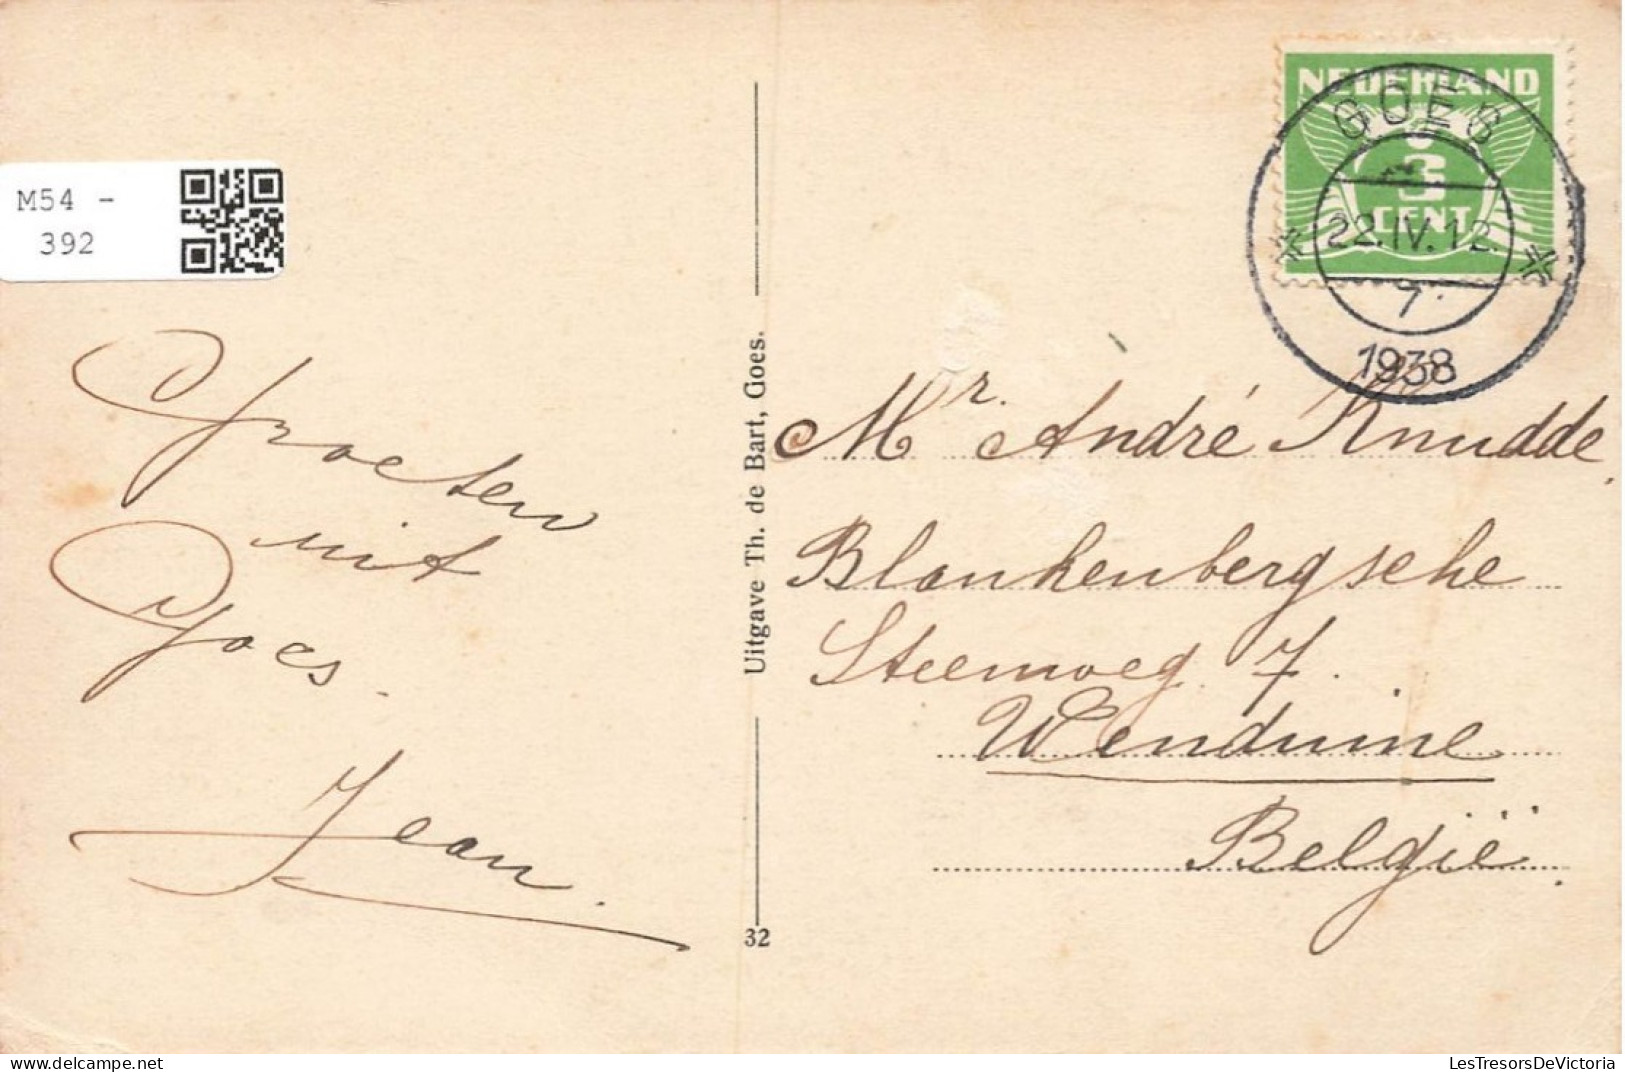 M54 -
392
Groeten
uit
Goes.
Jean.
Uitgave Th. de Bart, Goes.
32
NEDERLAND
3
CENT
GOES
22.IV.12
7
1938
Mr. André Knudde,
Blankenbergsche
Steenweg 7.
Wenduine
België.
www.delcampe.net
LesTresorsDeVictoria